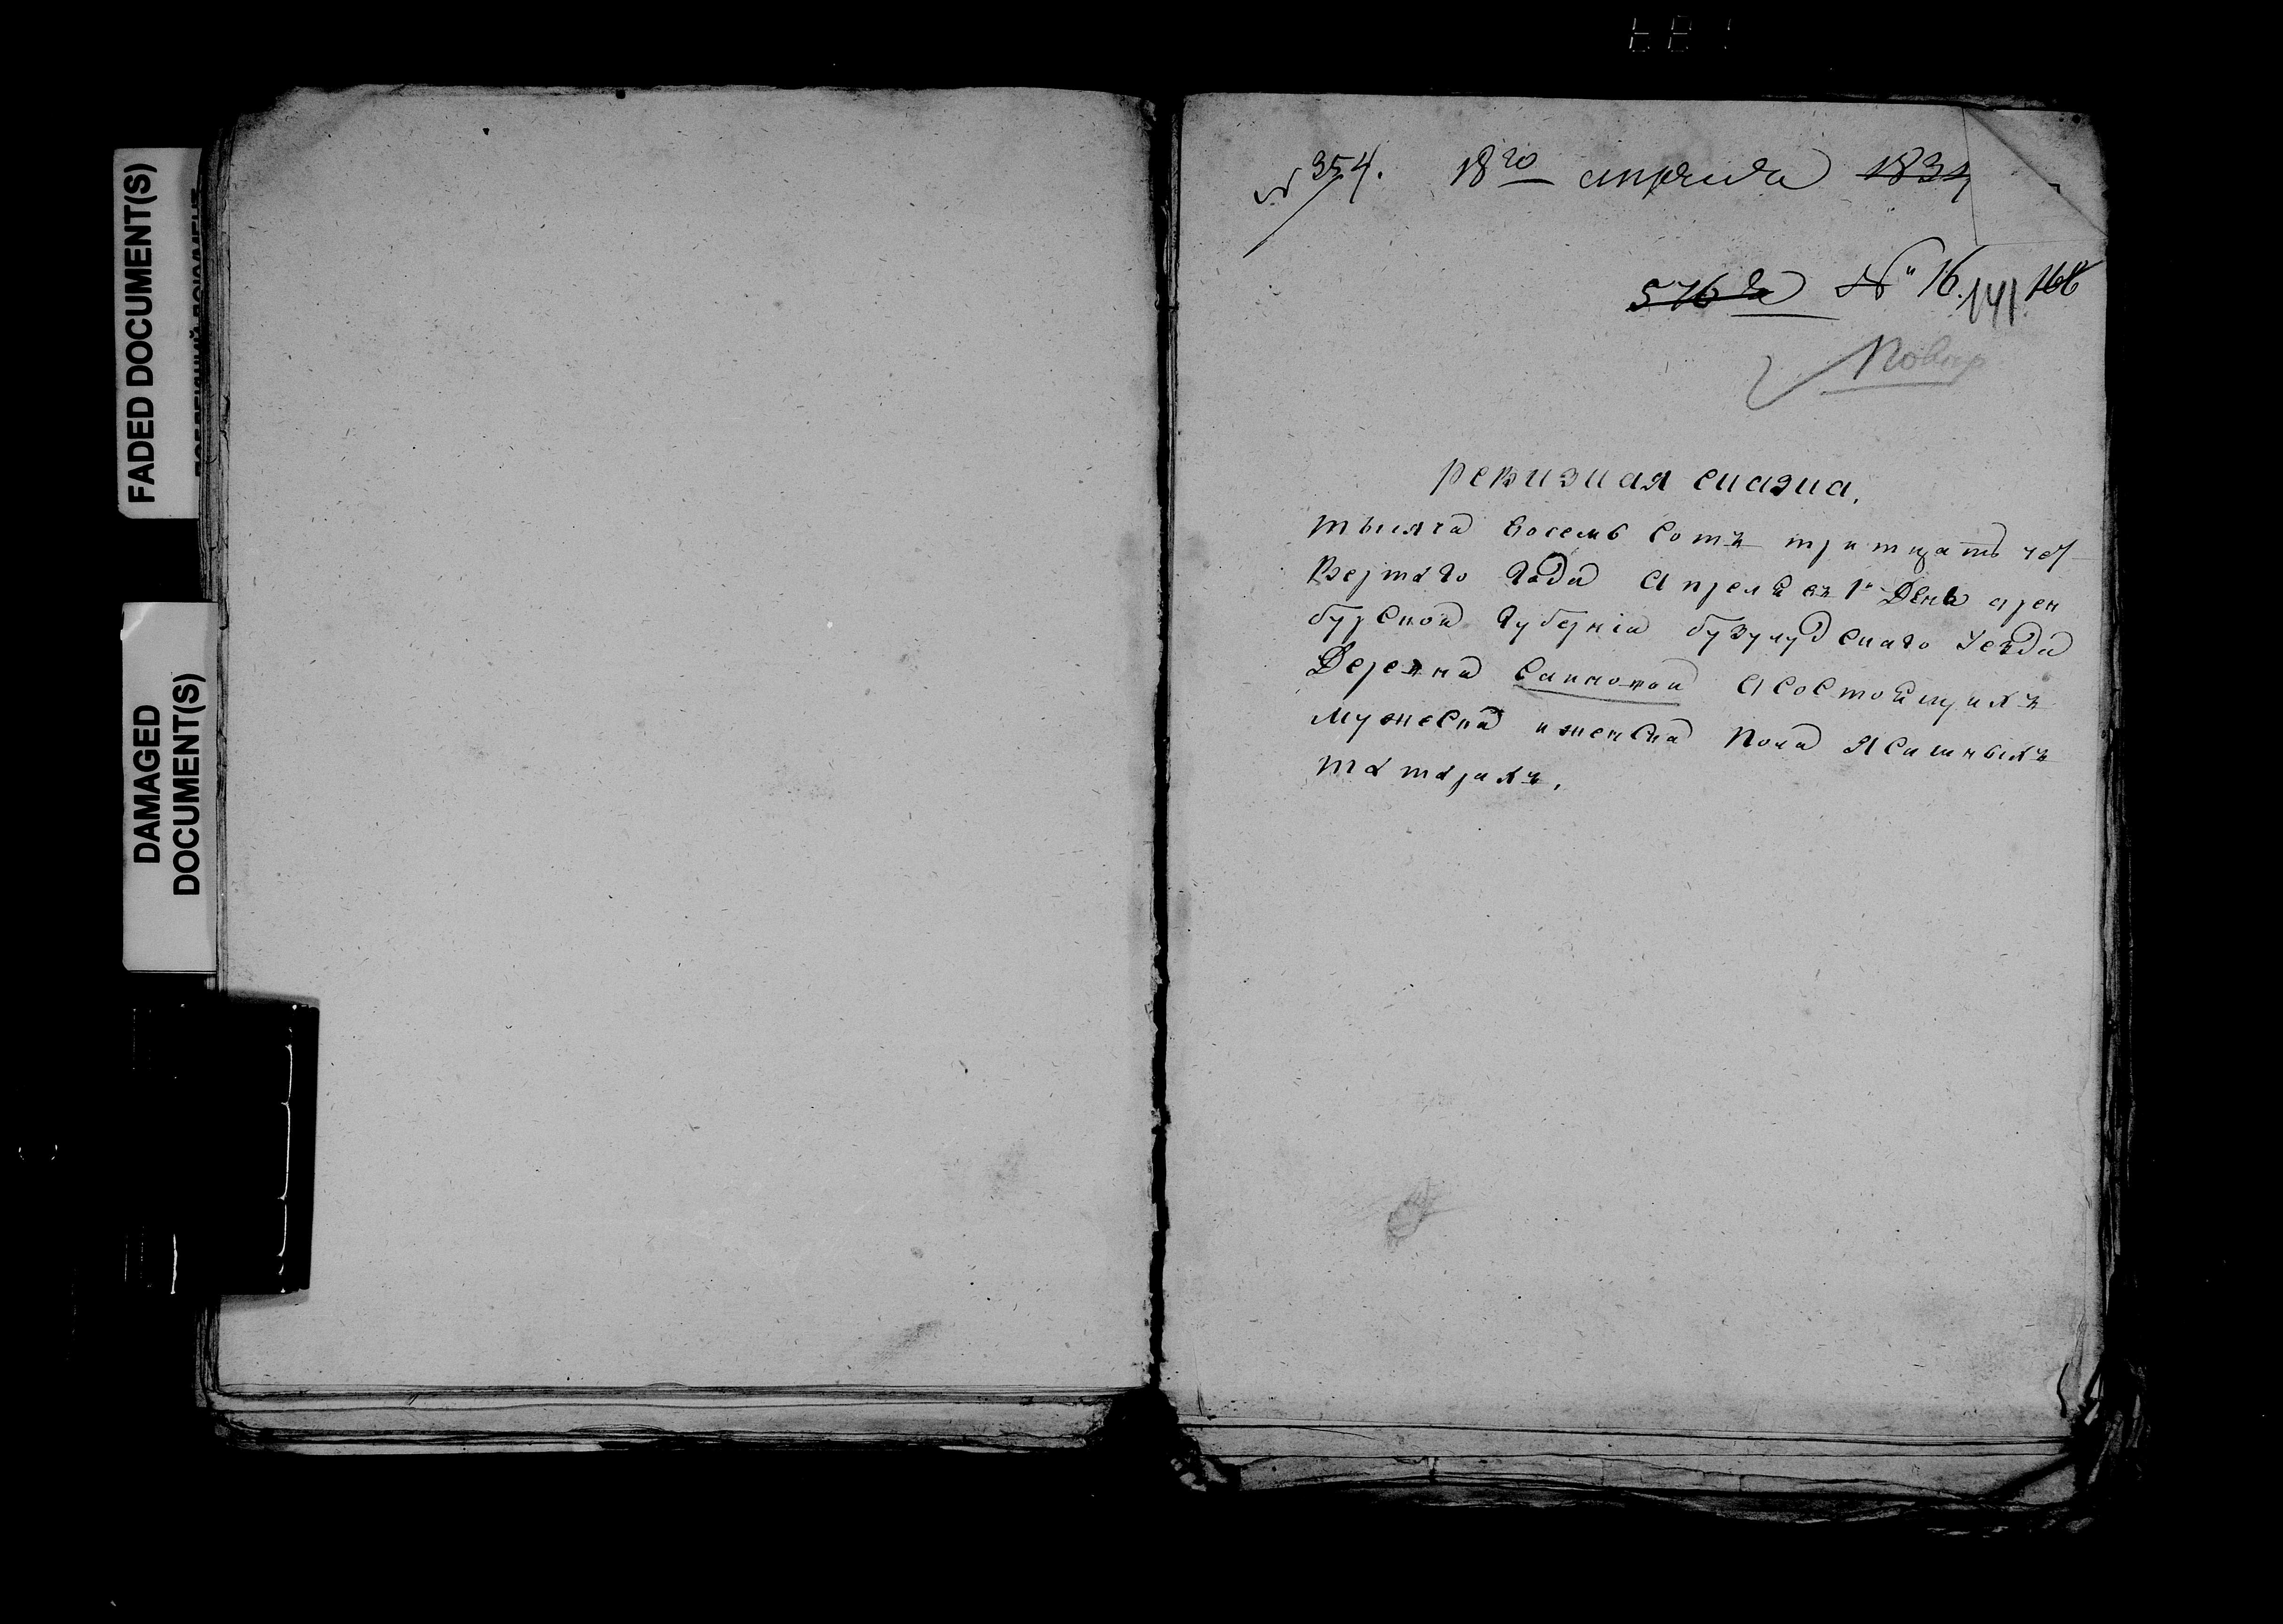 FADED DOCUMENT(S)
DAMAGED
DOCUMENT(S)
№ 354. 18го апреля 1834
576 № 16. 141 168
Повер
ревизская сказка.
тысяча восемь сотъ тритцать чет
вертаго года апреля въ 1й день орен
бурской губернiи бузулуцкаго уезда
деревни осостоящихъ
мужеска и женска пола ясашныхъ
татарахъ.